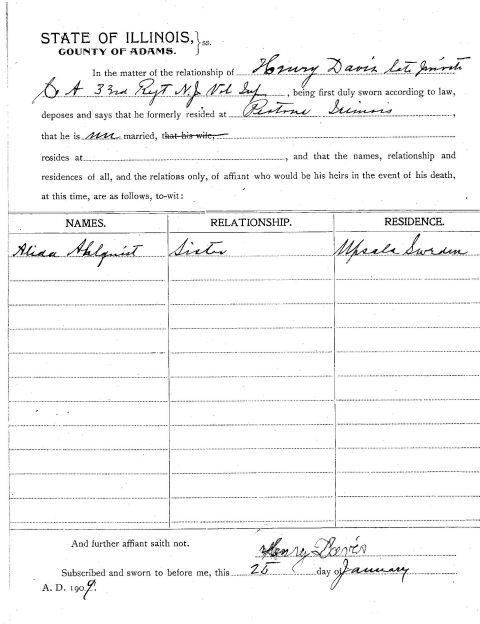 STATE OF ILLINOIS, } ss.
COUNTY OF ADAMS.
In the matter of the relationship of Henry Davis late private
Co A 33rd Regt N.J. Vol Inf, being first duly sworn according to law,
deposes and says that he formerly resided at Illinois,
that he is un married, that his wife,
resides at, and that the names, relationship and
residences of all, and the relations only, of affiant who would be his heirs in the event of his death,
at this time, are as follows, to-wit:
NAMES. RELATIONSHIP. RESIDENCE.
Alida Ahlquist Sister Upsala Sweden
And further affiant saith not.
Henry Davis
Subscribed and sworn to before me, this 25 day of January
A. D. 1909.